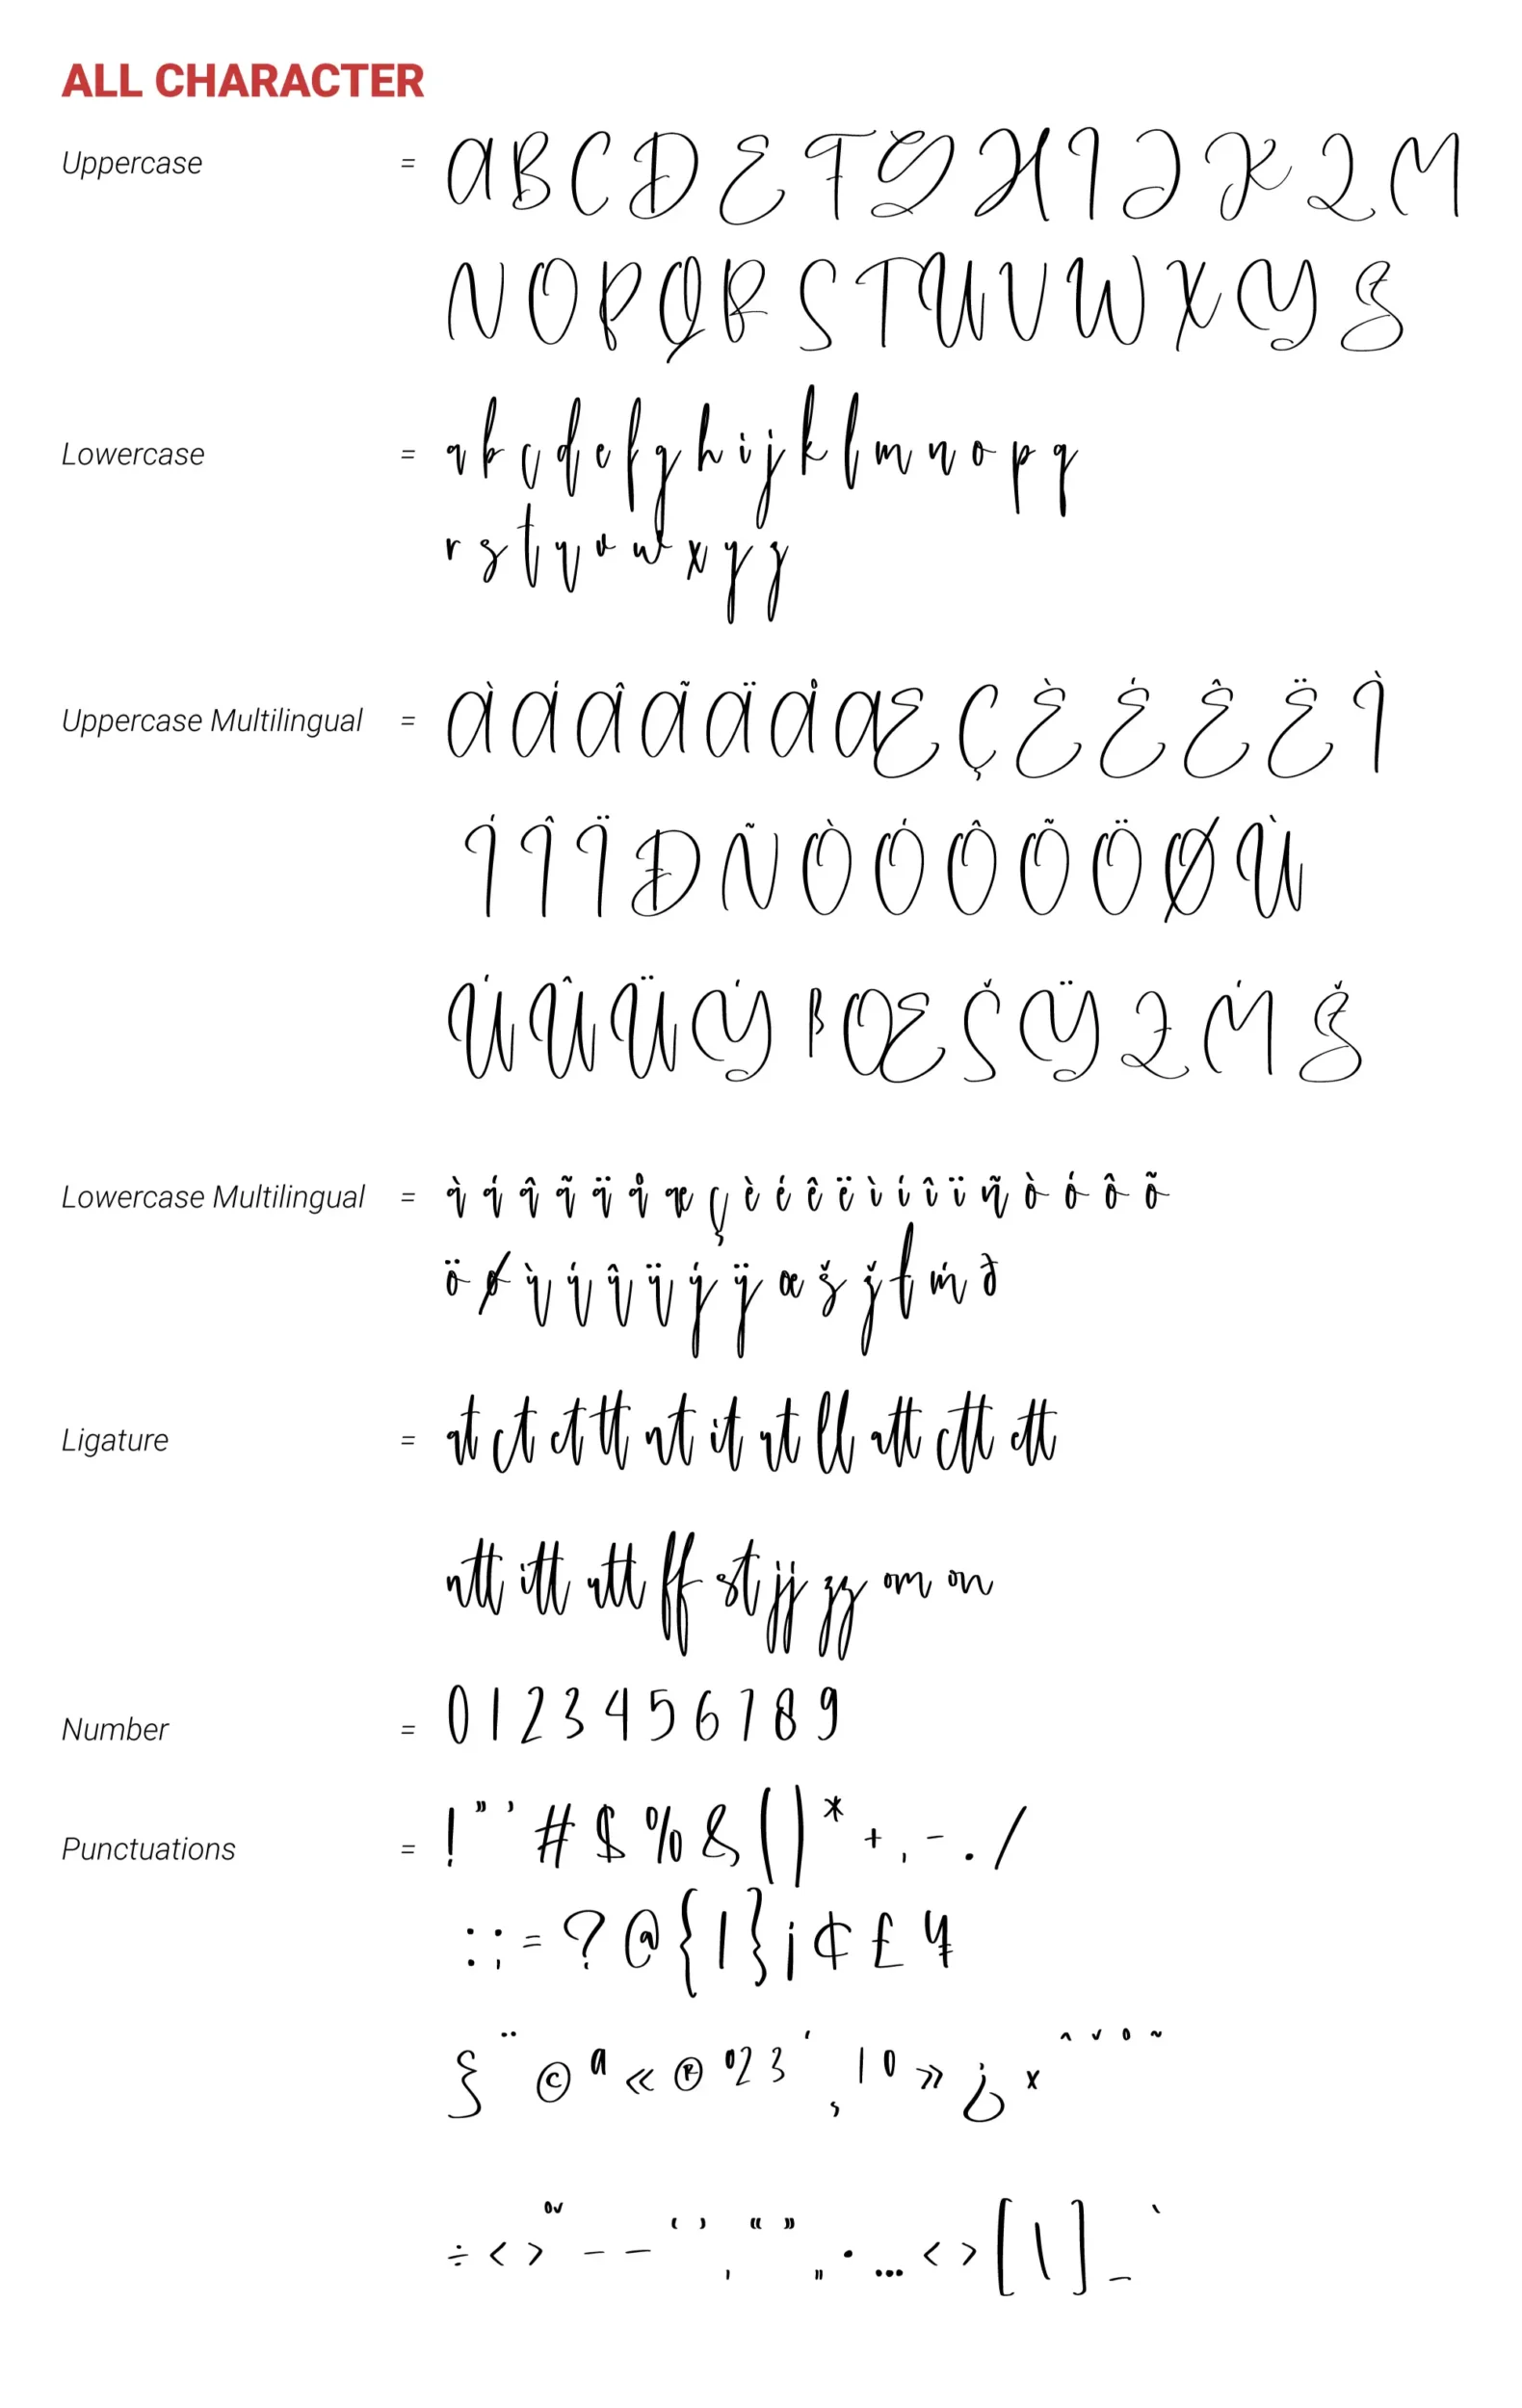 ALL CHARACTER
Uppercase = A B C D E F G H I J K L M
N O P Q R S T U V W X Y Z
Lowercase = a b c d e f g h i j k l m n o p q
r s t u v w x y z
Uppercase Multilingual = À Á Â Ã Ä Å Æ Ç È É Ê Ë Ì
Í Î Ï Ð Ñ Ò Ó Ô Õ Ö Ø Ù
Ú Û Ü Ý ß Œ Š Ÿ Ł Ḿ Ž
Lowercase Multilingual = à á â ã ä å æ ç è é ê ë ì í î ï ñ ò ó ô õ
ö ø ù ú û ü ý ÿ œ š ž ł ḿ ð
Ligature = at ct et tt nt it ut ll att ctt ett
ntt itt utt ff st jj zz om on
Number = 0 1 2 3 4 5 6 7 8 9
Punctuations = ! " ' # $ % & ( ) * + , - . /
: ; = ? @ { | } ¡ ¢ £ ¥
§ ¨ © ª « ® ° 2 3 ´ ¸ 1 º » ¿ × ˆ ˇ ˚ ˜
÷ < > – — ‘ ’ ‚ “ ” „ • … ‹ › [ \ ] _ `